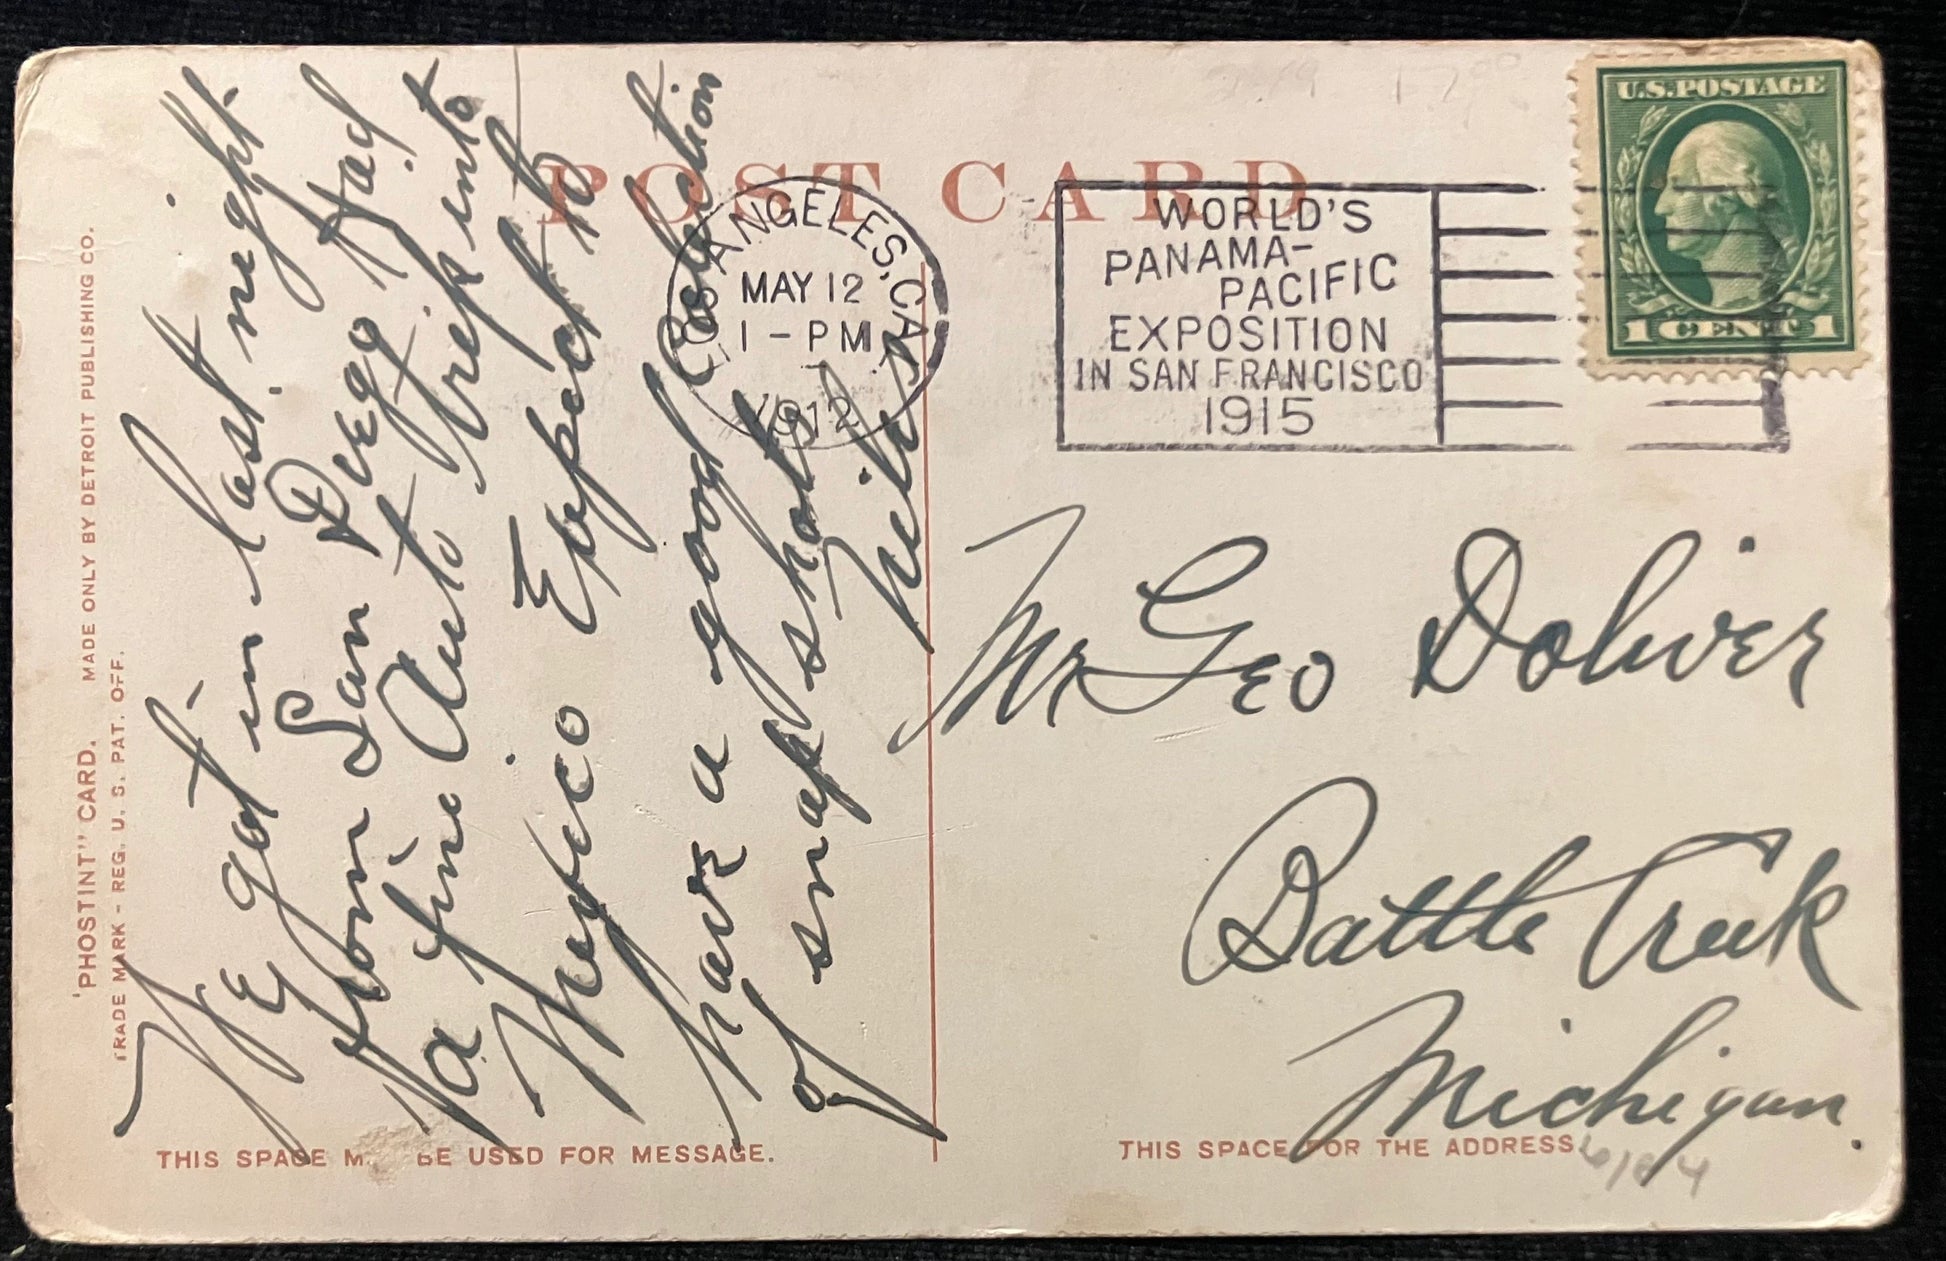 POST CARD
"PHOSTINT" CARD. MADE ONLY BY DETROIT PUBLISHING CO.
TRADE MARK - REG. U. S. PAT. OFF.
We got in last night
from San Diego Had
a fine Auto trip into
Mexico Expect to
have a good Collection
of snap shots
Niles
THIS SPACE M BE USED FOR MESSAGE.
LOS ANGELES, CAL.
MAY 12
1 - PM
1912
WORLD'S
PANAMA-
PACIFIC
EXPOSITION
IN SAN FRANCISCO
1915
U.S. POSTAGE
1 CENT 1
Mr Geo Doliver
Battle Creek
Michigan.
THIS SPACE FOR THE ADDRESS